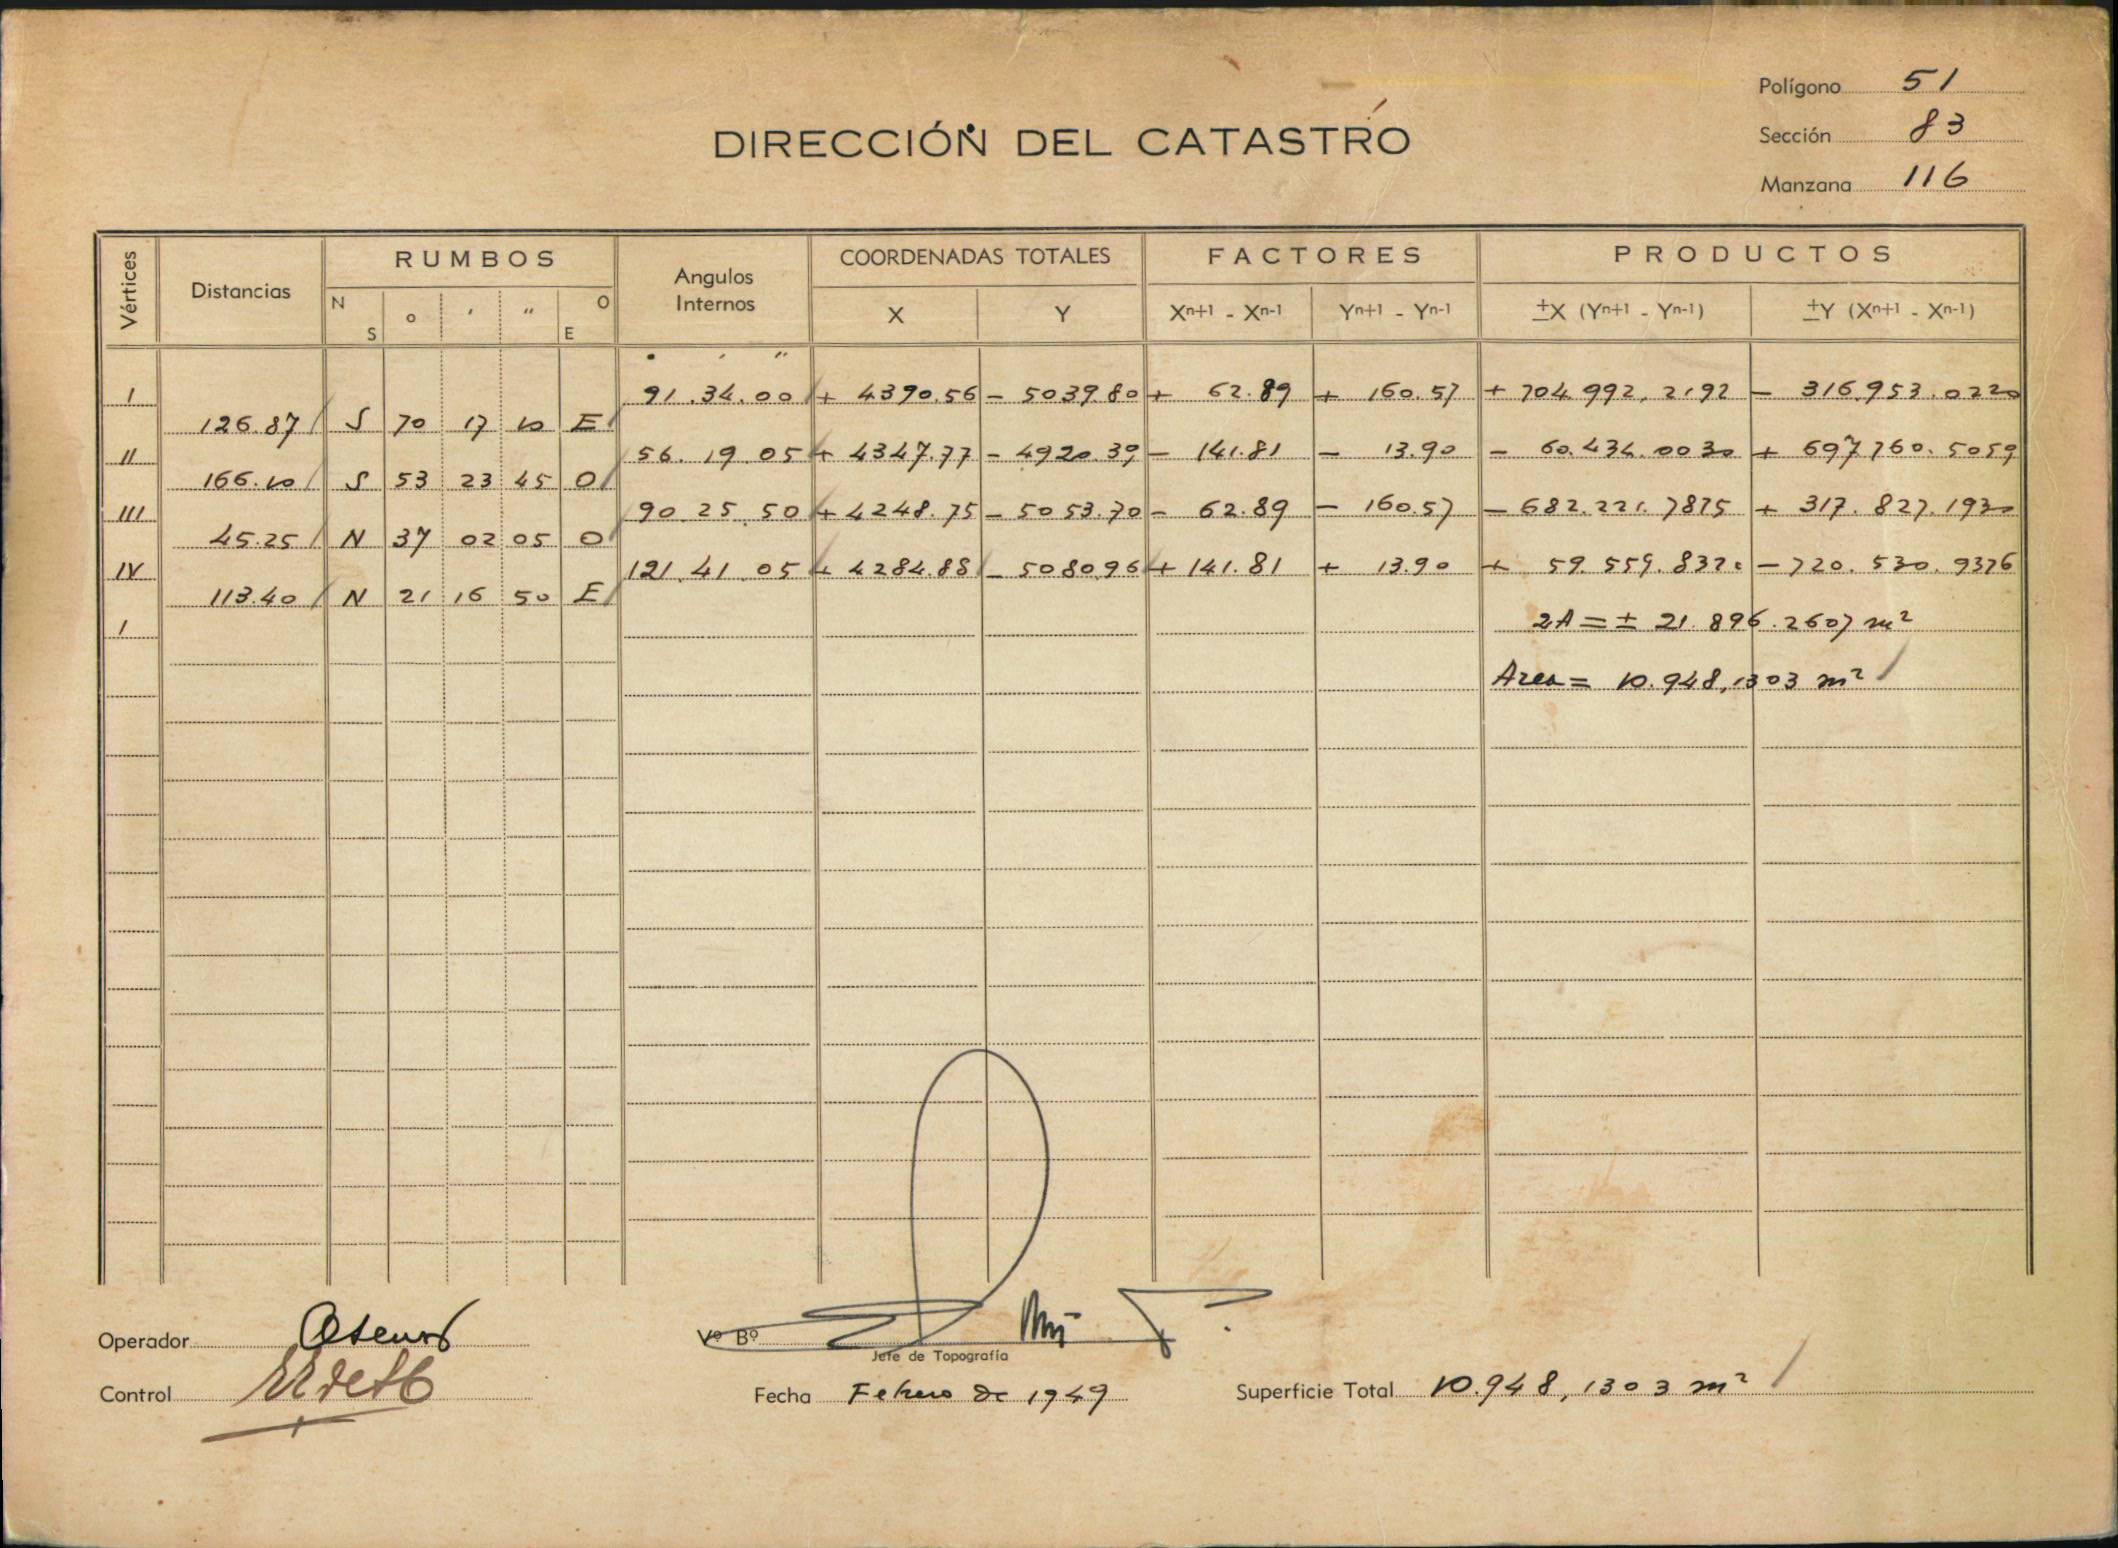 Polígono 51
DIRECCIÓN DEL CATASTRO
Sección 83
Manzana 116
Vértices Distancias RUMBOS Angulos Internos COORDENADAS TOTALES FACTORES PRODUCTOS
N S o ' " O E X Y Xn+1 - Xn-1 Yn+1 - Yn-1 ±X (Yn+1 - Yn-1) ±Y (Xn+1 - Xn-1)
° ' "
I 91.34.00 + 4390.56 - 5039.80 + 62.89 + 160.57 + 704.992,2192 - 316.953.0220
126.87 S 70 17 10 E
II 56.19.05 + 4347.77 - 4920.39 - 141.81 - 13.90 - 60.434.0030 + 697.760.5059
166.10 S 53 23 45 O
III 90.25.50 + 4248.75 - 5053.70 - 62.89 - 160.57 - 682.221.7875 + 317.827.1930
45.25 N 37 02 05 O
IV 121.41.05 + 4284.88 - 5080.96 + 141.81 + 13.90 + 59.559.8320 - 720.530.9376
113.40 N 21 16 50 E
I 2A = ± 21.896.2607 m²
Area = 10.948,1303 m²
Operador
Vº Bº
Jefe de Topografía
Control
Fecha Febrero de 1949
Superficie Total 10.948,1303 m²